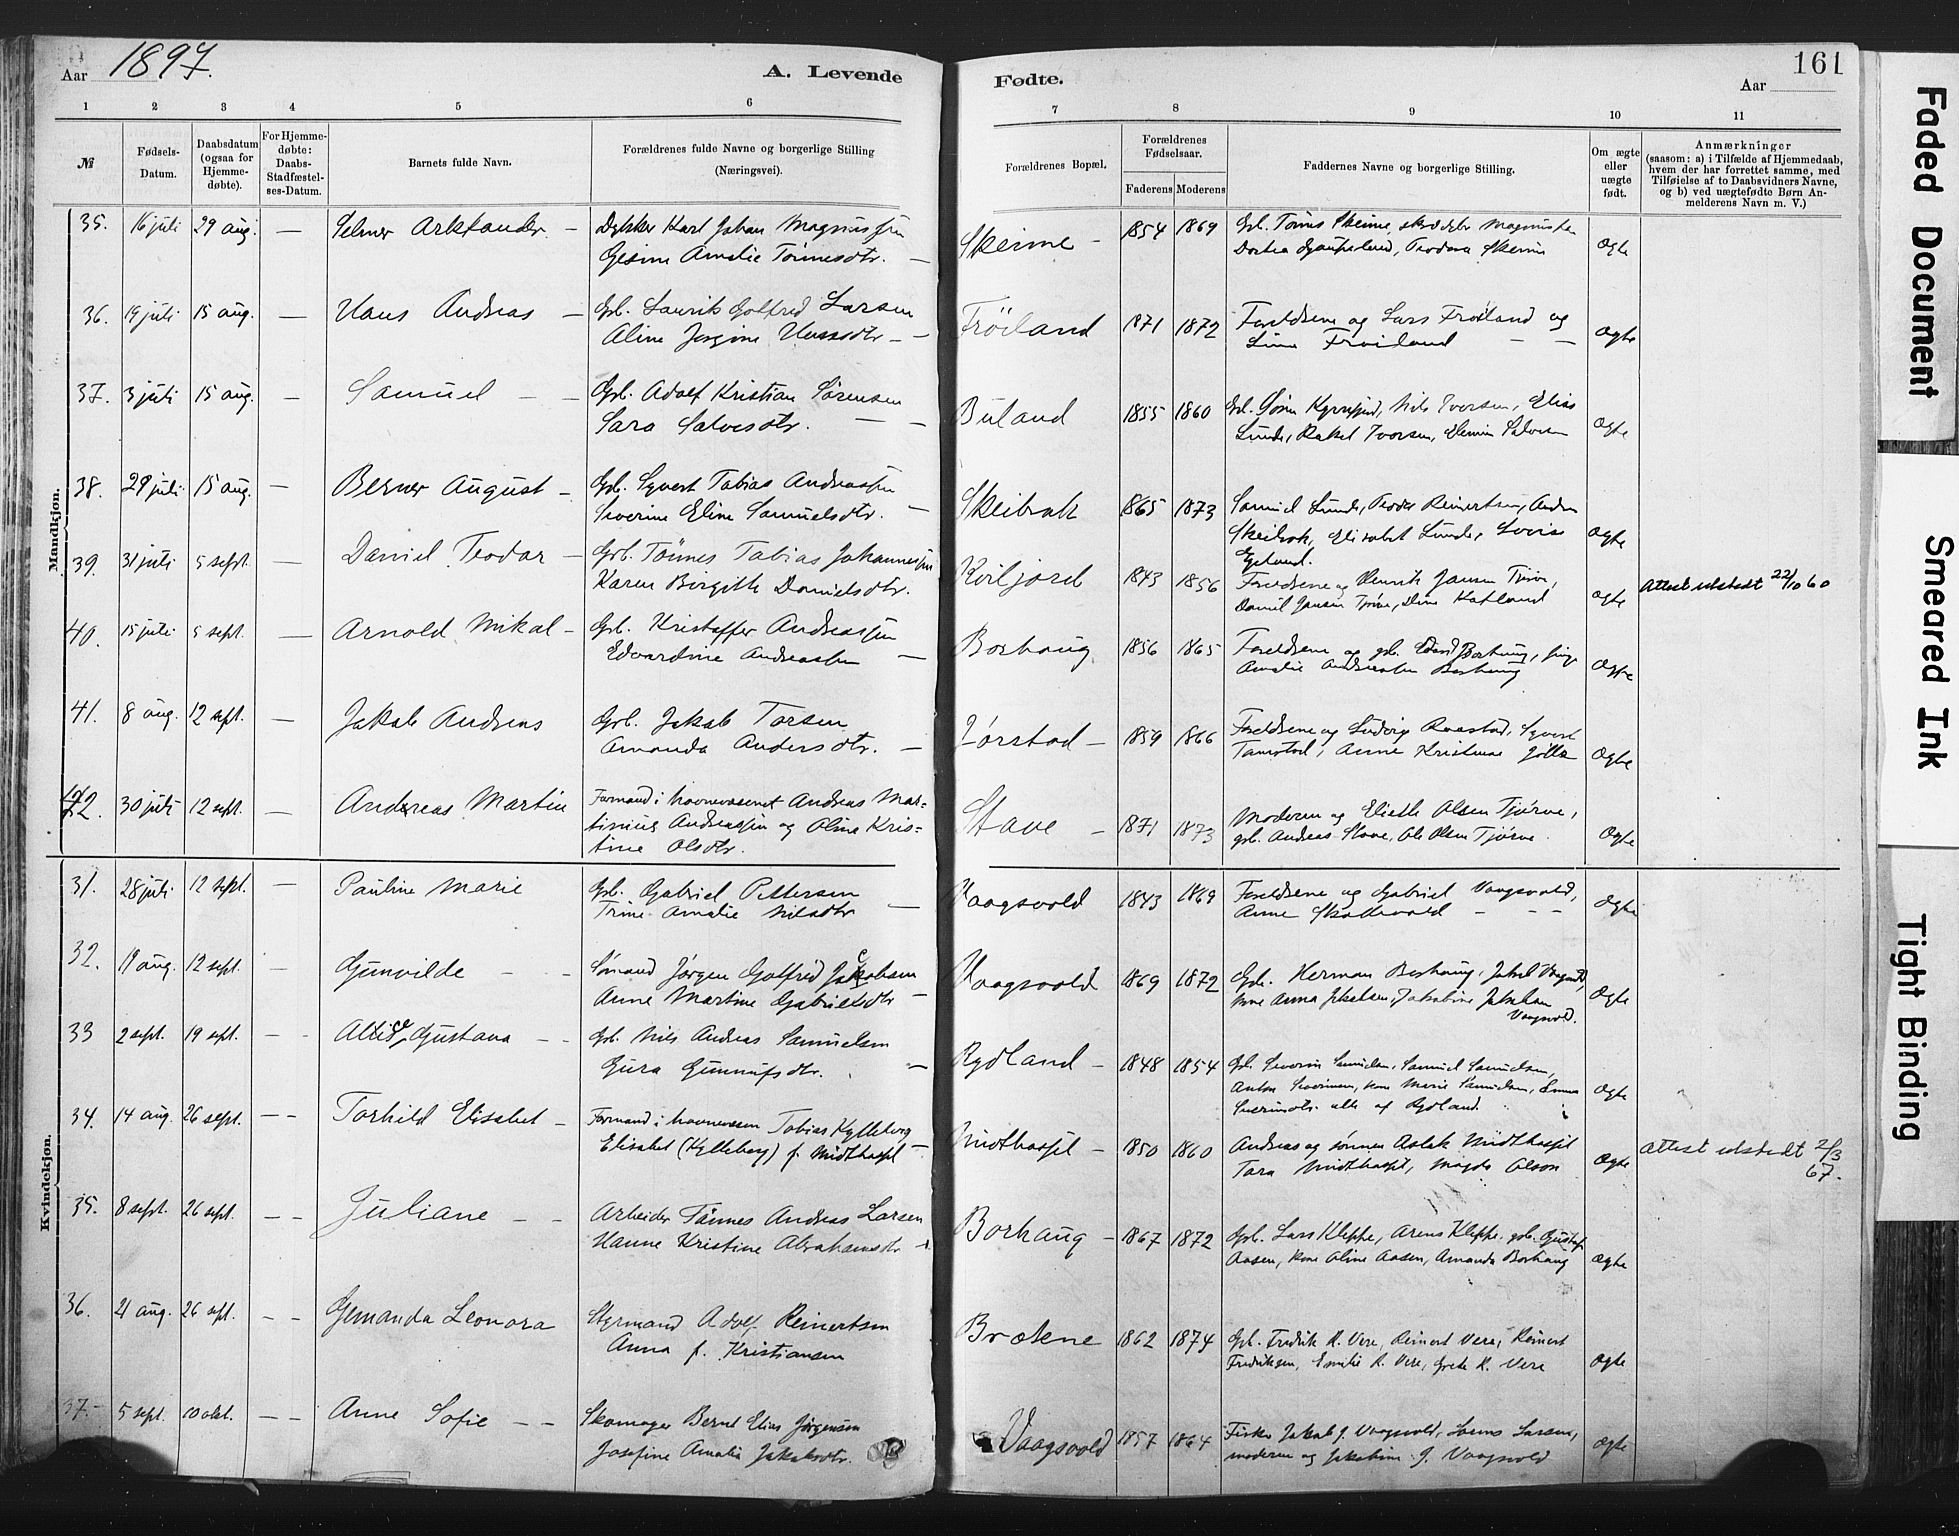 Aar 1897.
A. Levende
1 2 3 4 5 6
№
Fødsels-Datum.
Daabsdatum (ogsaa for Hjemme-døbte).
For Hjemme-døbte: Daabs-Stadfæstel-ses-Datum.
Barnets fulde Navn.
Forældrenes fulde Navne og borgerlige Stilling
(Næringsvei).
Mandkjøn.
35. 16 juli 29 aug. — Selmer Arktander — Dykker Karl Johan Magnussen
Gesine Amalie Tønnesdtr. —
36. 19 juli 15 aug. — Hans Andreas — Gbl. Laurits Gotfred Larsen
Aline Jorgine Hansdtr — —
37. 3 juli 15 aug. — Samuel — — Gbl. Adolf Kristian Sørensen
Sara Salvesdtr. — —
38. 29 juli 15 aug. — Berner August — Gbl. Syvert Tobias Andreassen
Severine Eline Samuelsdtr. —
39. 31 juli 5 sept. — Daniel Teodor — Gbl. Tönnes Tobias Johannessen
Karen Borgitte Danielsdtr.
40. 15 juli 5 sept. — Arnold Mikal — Gbl. Kristoffer Andreassen
Edvardine Andreassen —
41. 8 aug. 12 sept. — Jakob Andreas Gbl. Jakob Torsen
Amanda Andersdtr. —
42. 30 juli 12 sept. — Andreas Martin Formand i havnevæsenet Andreas Mar=
tinius Andreassen og Oline Kris=
tine Olsdtr.
Kvindekjøn.
31. 28 juli 12 sept. — Pauline Marie Gbl. Gabriel Pettersen
Trine Amalie Nilsdtr —
32. 19 aug. 12 sept. — Gunvilde — — Sømand Jørgen Gotfred Jakobsen
Anne Martine Gabrielsdtr —
33 2 sept. 19 sept. — - Gustava — — Gbl. Nils Andreas Samuelsen
Gura Gunnufsdtr. —
34. 14 aug. 26 sept. — — Torhild Elisabet — Formand i havnevæsen Tobias Kylleberg
Elisabet (Kylleberg) f. Midthassel —
35. 8 sept. 26 sept. — — Juliane — — Arbeider Tönnes Andreas Larsen
Hanne Kristine Abrahamsdtr —
36. 21 aug. 26 spt. — — Gemanda Leonora Styrmand Adolf Reinertsen
Anna f. Kristiansen
37. 5 sept. 10 okt. — — Anne Sofie — — Skomager Bernt Elias Jørgensen
Josefine Amalia Jakobsdtr.
161
Fødte.
Aar
7 8 9 10 11
Forældrenes Bopæl.
Forældrenes Fødselsaar.
Faderens Moderens
Faddernes Navne og borgerlige Stilling.
Om ægte eller uægte født.
Anmærkninger
(saasom: a) i Tilfælde af Hjemmedaab,
hvem der har forrettet samme, med
Tilføielse af to Daabsvidners Navne,
og b) ved uægtefødte Børn An-
melderens Navn m. V.)
Skeime — 1854 1869 Gbl. Tönnes Skeime,
Teodora Skeime Ægte
Fröiland 1871 1872 Foreldrene og Lars Fröiland og
Fröiland — — Ægte
Buland 1855 1860 Gbl. Sören Nils Iversen, Elias
Lunde, Rakel Iversen, Ægte
Skeibrok 1865 1873 Samuel Lunde, Teodor Reinertsen,
Skeibrok, Elisabet Lunde, Lovise
Egeland. Ægte
Kviljord 1843 1856 Foreldrene og Henrik Jansen Tjørve,
Daniel Jansen Tjørve, Katland Ægte Attest udstedt 22/10 60
Borhaug 1856 1865 Foreldrene og gbl. Borhaug,
Amalie Andreassen Borhaug Ægte
1859 1866 Foreldrene og Ludvig Syvert
Anne Kristine Ægte
Stave — 1871 1873 Moderen og Elisabeth Olsen Tjørve,
gbl. Andreas Stave, Ole Olsen Tjørve. Ægte
Vaagsvold 1843 1869 Foreldrene og Gabriel Vaagsvold,
Anne — — — Ægte
Vaagsvold 1869 1872 Gbl. Herman Borhaug, Jakob Vaagsvold,
kone Anna Jakobsen, Jakobine Jakobsen
Vaagsvold. Ægte
Rydland — 1848 1854 Gbl. Severin Samuelsen, Samuel Samuelsen,
Anton Severinsen, kone Marie Samuelsen,
Severinsdtr. alle af Rydland. Ægte
Midthassel — 1850 1860 Andreas og sönnen Aslak Midthassel
Tora Midthassel, Magda Olson Ægte Attest udstedt 2/3
67.
Borhaug — 1867 1872 Gbl. Lars Kleppe, Arens Kleppe. gbl. Gustaf
Aasen, kone Oline Aasen, Amanda Borhaug Ægte
Brækne 1862 1874 Gbl. Fredrik R. Vere, Reinert Vere, Reinert
Fredriksen, Emilie R. Vere, Grete R. Vere Ægte
Vaagsvold 1857 1864 Fisker Jakob J. Vaagsvold, Larsen,
moderen og Jakobine J. Vaagsvold Ægte
Faded Document
Smeared Ink
Tight Binding